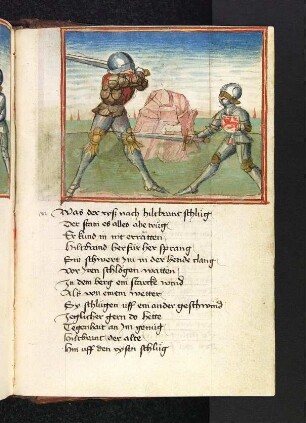 Was der rysß nach hiltbrant schlůg
Der stain es alles abe trůg
Er kund in nit erratten
Hiltbrand her für her sprang
Ein schwert im in der hende clang
vor inen schlögen watten
In dem berg ein starcke wind
Als von einem wetter
Sy schlůgen uff ein ander geschwind
Jeglicher gern do hette
Degenhait an im genůg
Hiltbrant der alte
hin uff den rysen schlůg